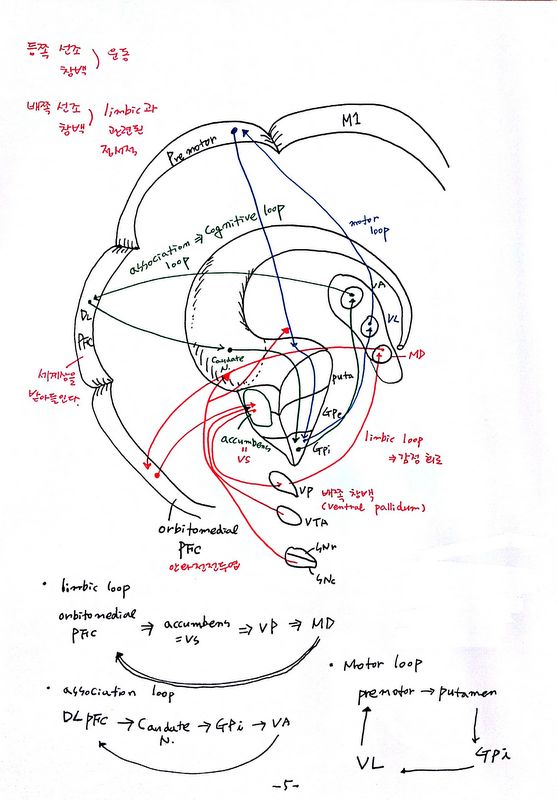 등쪽 선조
창백 ) 운동
배쪽 선조
창백 ) limbic과
관련된
정서적
M1
Premotor
association ⇒ Cognitive loop
loop
motor
loop
VA
VL
MD
DL
PFC
세계상을
받아들인다.
Caudate
N.
puta
GPe
GPi
accumbens
=
VS
limbic loop
⇒ 감정 회로
VP
배쪽 창백
(ventral pallidum)
VTA
SNr
SNc
orbitomedial
PFC
안와전전두엽
• limbic loop
orbitomedial
PFC ⇒ accumbens
=VS ⇒ VP ⇒ MD
• association loop
DLPFC → Caudate
N. → GPi → VA
• Motor loop
premotor → putamen
GPi
VL
-5-